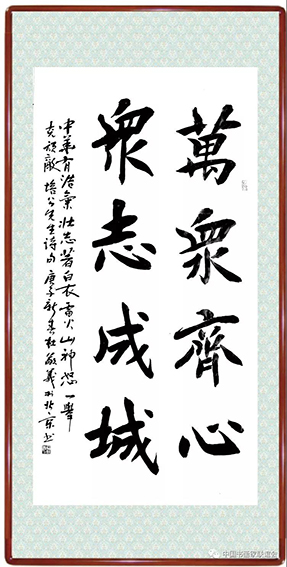 萬眾齊心
眾志成城
中華有浩氣壯志著白衣雷火山神怒一舉
克頑敵 培公先生詩句 庚子新春 敬義於北京
中国书画家联谊会